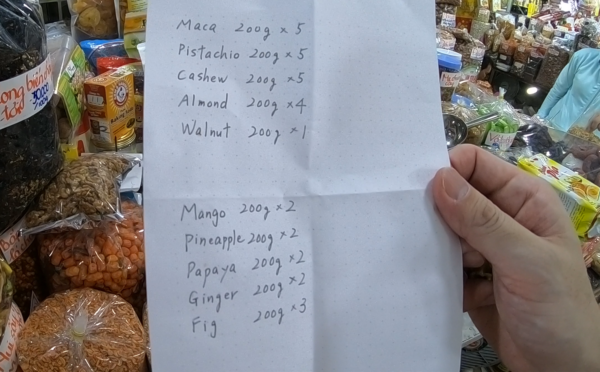 Maca 200g × 5
Pistachio 200g × 5
Cashew 200g × 5
Almond 200g × 4
Walnut 200g × 1
Mango 200g × 2
Pineapple 200g × 2
Papaya 200g × 2
Ginger 200g × 2
Fig 200g × 3